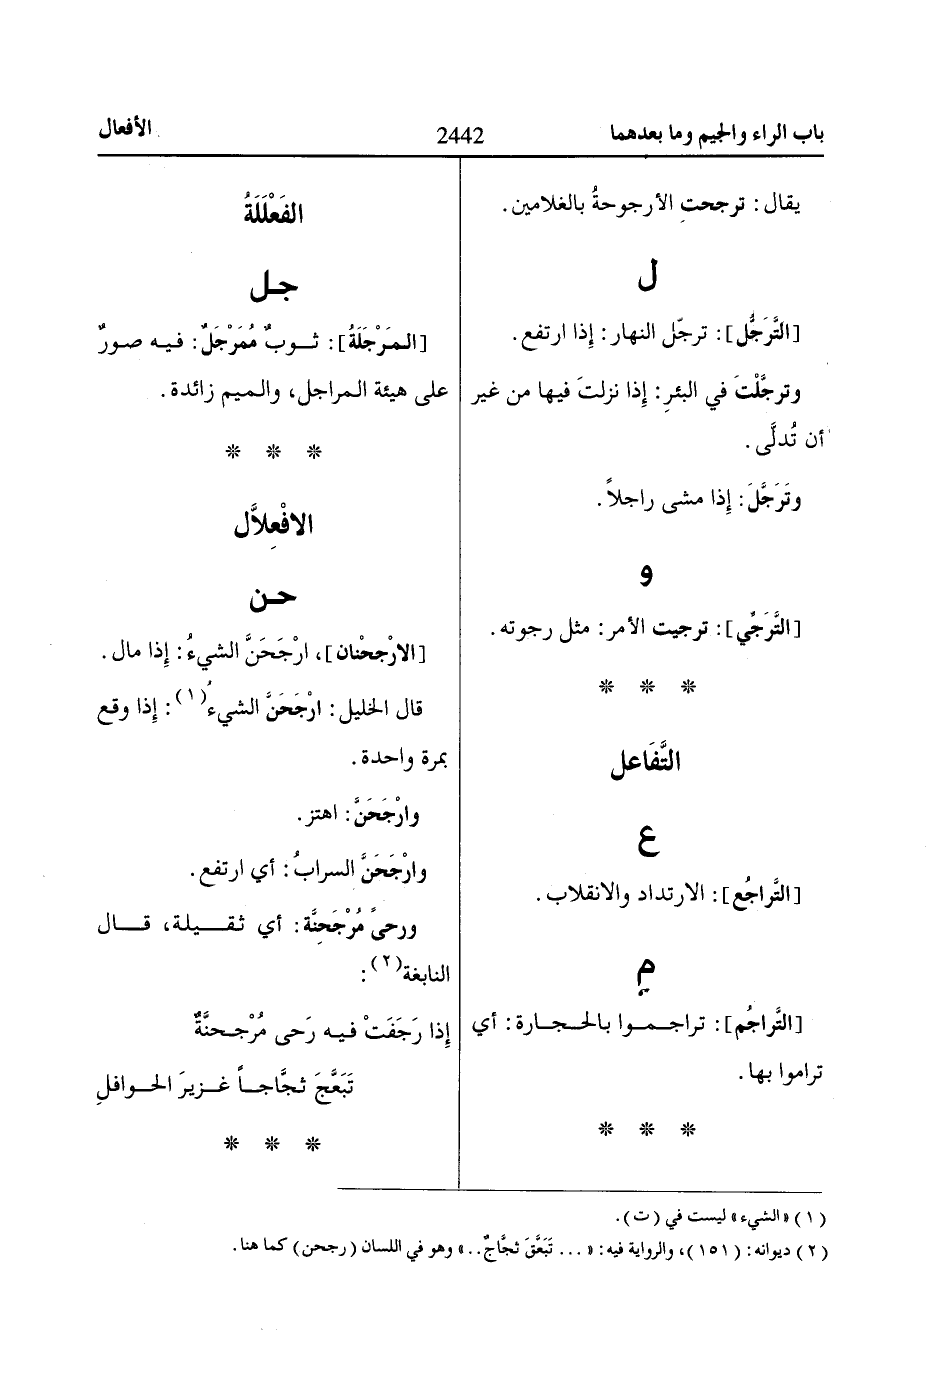 باب الراء والجيم وما بعدهما 2442 الأفعال
يقال: ترجحت الأرجوحةُ بالغلامين.
ل
[التَّرَجُّل]: ترجّل النهار: إذا ارتفع.
وترجَّلْتَ في البئرِ: إذا نزلتَ فيها من غير
أن تُدلَّى.
وتَرَجَّلَ: إذا مشى راجلاً.
و
[التَّرَجّي]: ترجيت الأمر: مثل رجوته.
* * *
التَّفَاعل
ع
[التَّراجُع]: الارتداد والانقلاب.
م
[التَّراجُم]: تراجموا بالحجارة: أي
تراموا بها.
* * *
الفَعْلَلَةُ
جل
[المَرْجَلَةُ]: ثوبٌ مُمَرْجَلٌ: فيه صورٌ
على هيئة المراجل، والميم زائدة.
* * *
الافْعِلاَّل
حن
[الارْجحْنان]، ارْجَحَنَّ الشيءُ: إذا مال.
قال الخليل: ارْجَحَنَّ الشيءُ(١): إذا وقع
بمرة واحدة.
وارْجَحَنَّ: اهتز.
وارْجَحَنَّ السرابُ: أي ارتفع.
ورحىً مُرْجَحِنَّة: أي ثقيلة، قال
النابغة(٢):
إذا رَجَفَتْ فيه رَحى مُرْجحنَّةٌ
تَبَعَّجَ ثجَّاجاً غزيرَ الحوافلِ
* * *
(١) «الشيء» ليست في (ت).
(٢) ديوانه: (١٥١)، والرواية فيه: «... تَبَعَّقَ ثجَّاجٌ..» وهو في اللسان (رجحن) كما هنا.